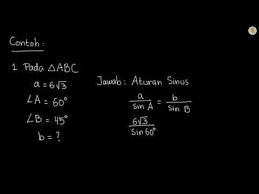 Contoh:
1. Pada △ABC
a = 6√3
∠A = 60°
∠B = 45°
b = ?
Jawab: Aturan Sinus
a/sin A = b/sin B
6√3/sin 60°